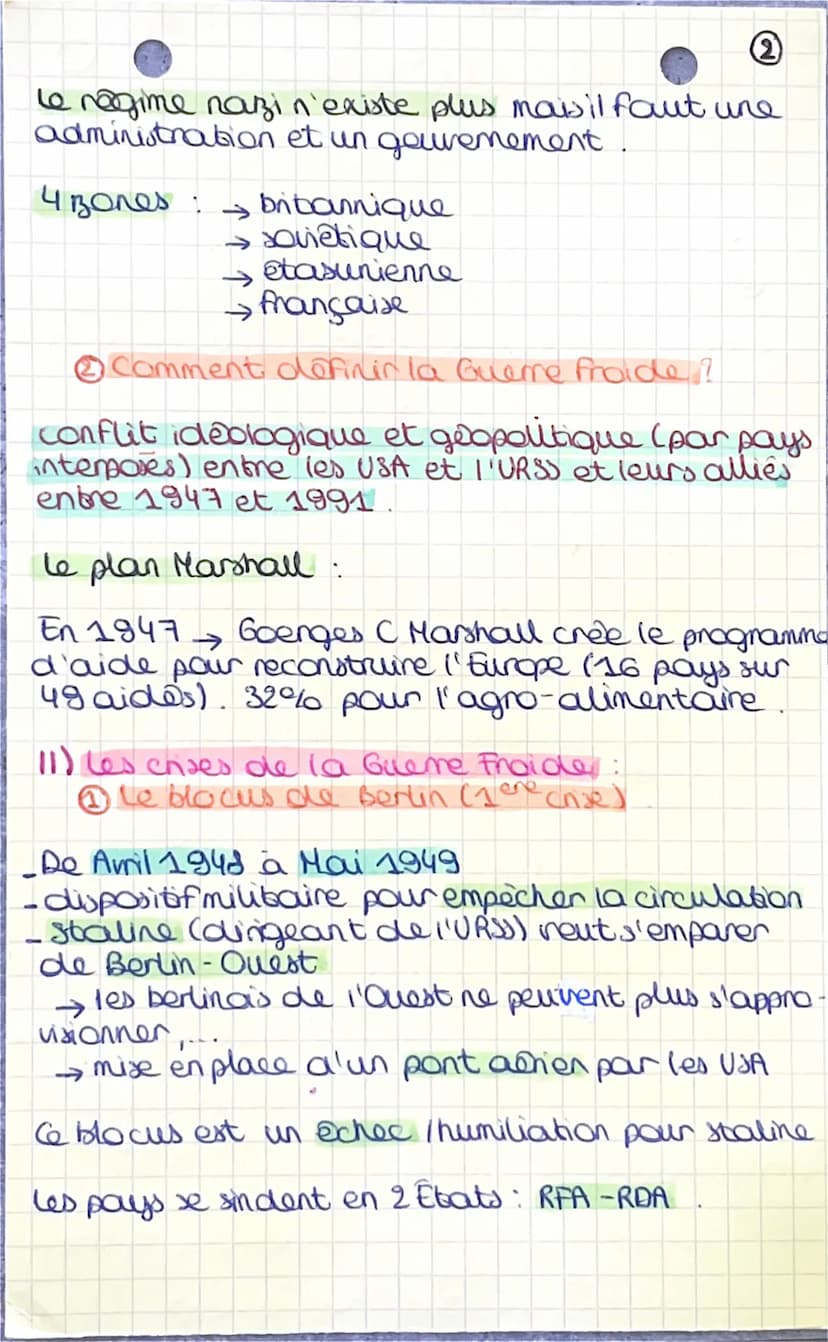 ②
Le régime nazi n'existe plus mais il faut une
administration et un gouvernement.
4 zones : → britannique
→ soviétique
→ étasunienne
→ française
② Comment définir la Guerre froide ?
conflit idéologique et géopolitique (par pays
interposés) entre les USA et l'URSS et leurs alliés
entre 1947 et 1991.
Le plan Marshall :
En 1947 → Goerges C Marshall crée le programme
d'aide pour reconstruire l'Europe (16 pays sur
49 aidés). 32% pour l'agro-alimentaire.
II) Les crises de la Guerre Froide :
① Le blocus de Berlin (1ère crise)
- De Avril 1948 à Mai 1949
- dispositif militaire pour empêcher la circulation
- Staline (dirigeant de l'URSS) veut s'emparer
de Berlin-Ouest
→ les berlinois de l'Ouest ne peuvent plus s'appro-
visionner,...
→ mise en place d'un pont aérien par les USA
Ce blocus est un échec / humiliation pour Staline
Les pays se sindent en 2 États : RFA - RDA.